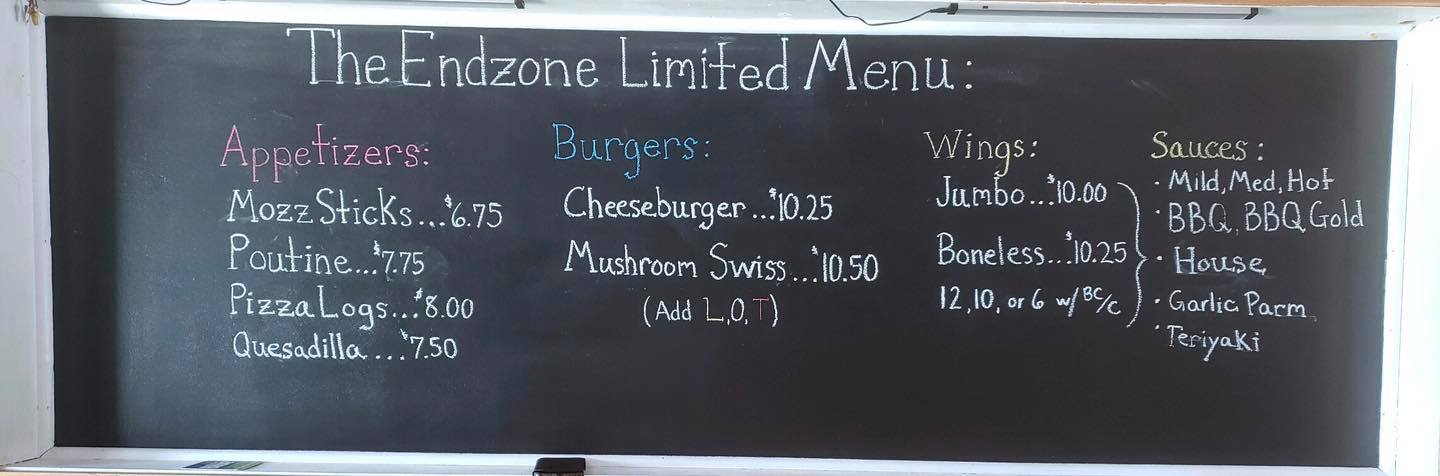 The Endzone Limited Menu:
Appetizers:
Mozz Sticks...$6.75
Poutine...$7.75
Pizza Logs...$8.00
Quesadilla...$7.50
Burgers:
Cheeseburger...$10.25
Mushroom Swiss...$10.50
(Add L,O,T)
Wings:
Jumbo...$10.00
Boneless...$10.25
12,10, or 6 w/ BC/C
Sauces:
· Mild, Med, Hot
· BBQ, BBQ Gold
· House
· Garlic Parm
· Teriyaki